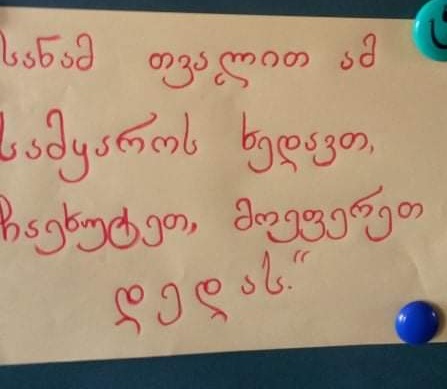 სანამ თვალით ამ
სამყაროს ხედავთ,
ჩაეხუტეთ, მოეფერეთ
დედას.“